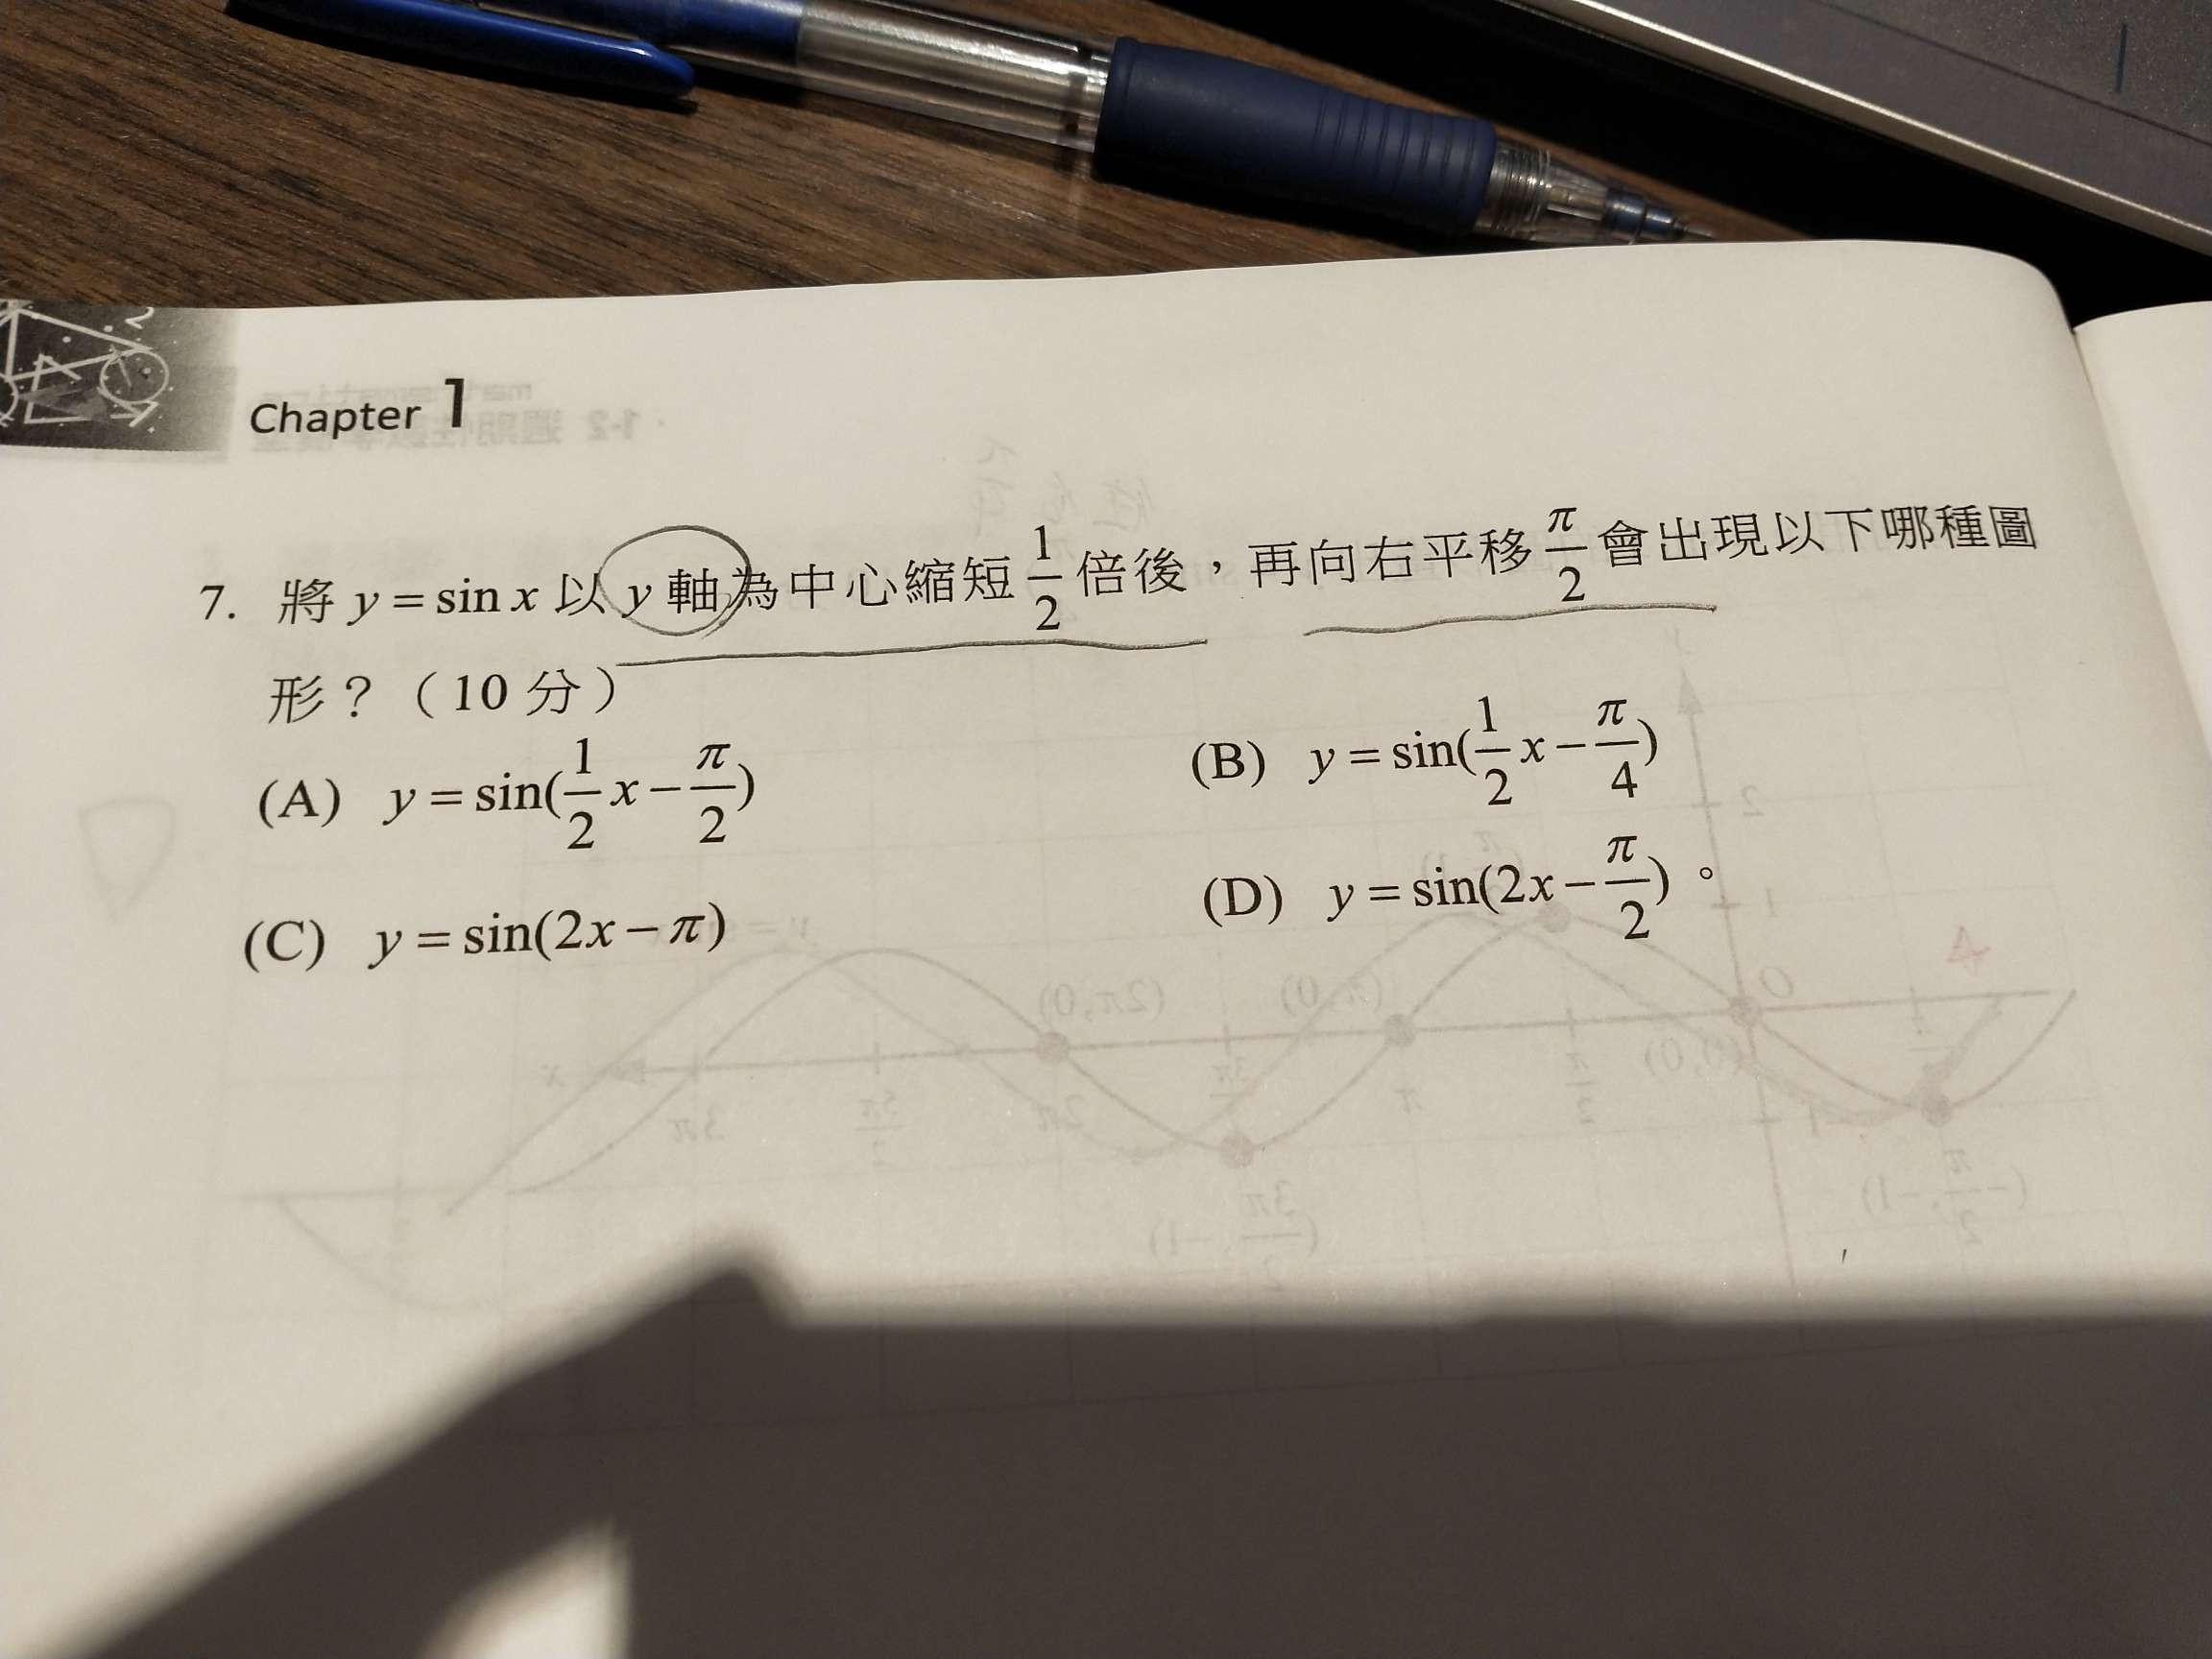 Chapter 1
7. 將 y = sin x 以 y 軸為中心縮短 1/2 倍後，再向右平移 π/2 會出現以下哪種圖
形？（10 分）
(A) y = sin(1/2 x − π/2)
(B) y = sin(1/2 x − π/4)
(C) y = sin(2x − π)
(D) y = sin(2x − π/2)。